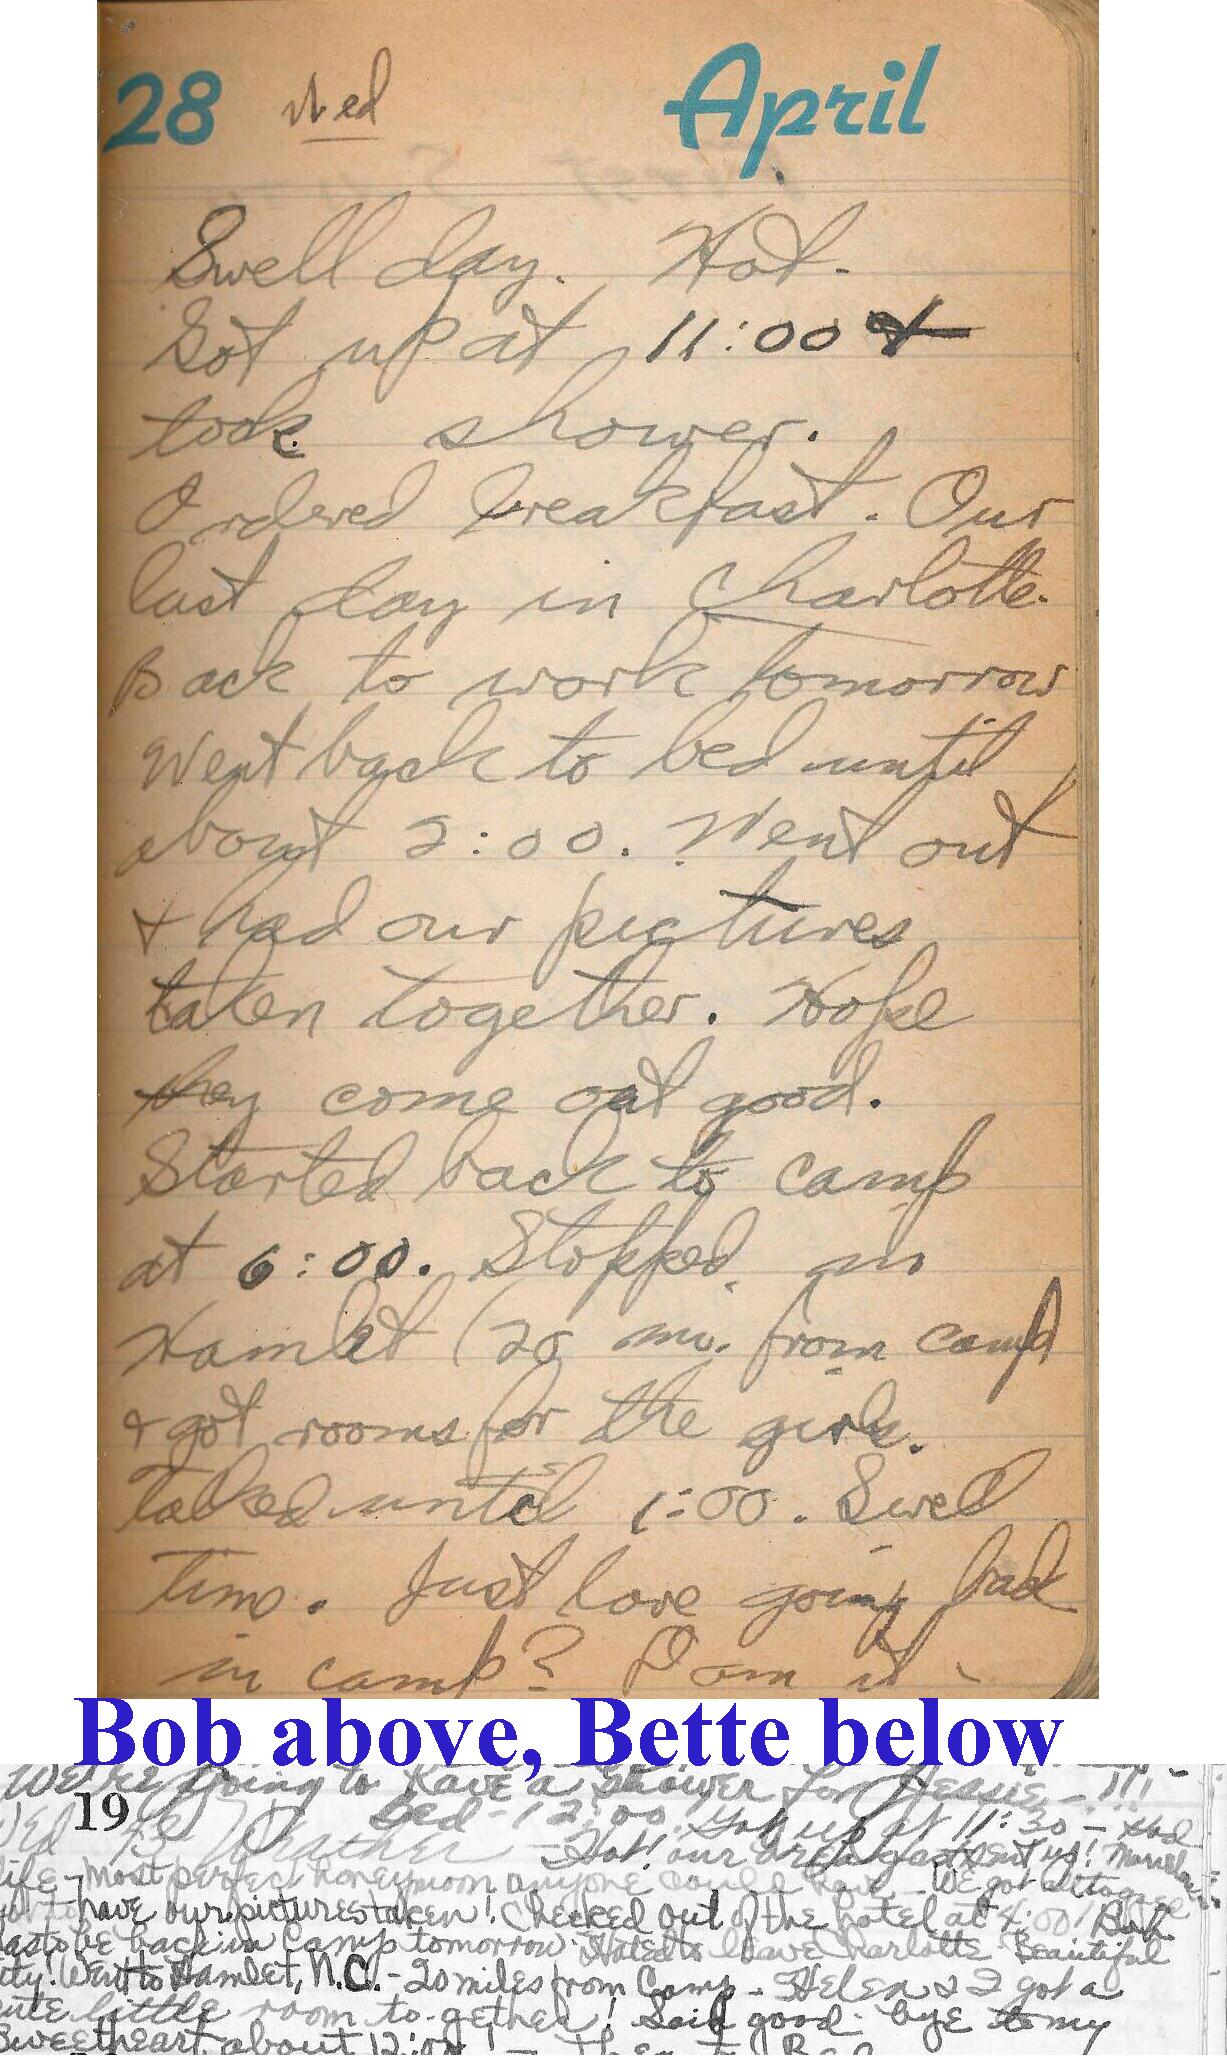 28 Wed April
Swell day. Hot.
Got up at 11:00 &
took shower.
Ordered breakfast. Our
last day in Charlotte.
Back to work tomorrow
Went back to bed until
about 2:00. Went out
+ had our pictures
taken together. Hope
they come out good.
Started back to camp
at 6:00. Stopped in
Hamlet (20 mi. from camp
+ got rooms for the girls.
Talked until 1:00. Swell
time. Just love going back
in camp? Damn it
Bob above, Bette below
We're going to have a shower for Jessie
19 Bed - 12:00. Got up at 11:30 - Had
Weather - Hot! our breakfast sent up!
life - most perfect honeymoon anyone could have - We got
have our pictures taken! Checked out of the hotel at 4:00! Bob
has to be back in Camp tomorrow. Hated to leave Charlotte Beautiful
city! Went to Hamlet, N.C. - 20 miles from Camp - Helen & I got a
cute little room to-gether! Said good-bye to my
Sweetheart about 12:00! - Then to Bed